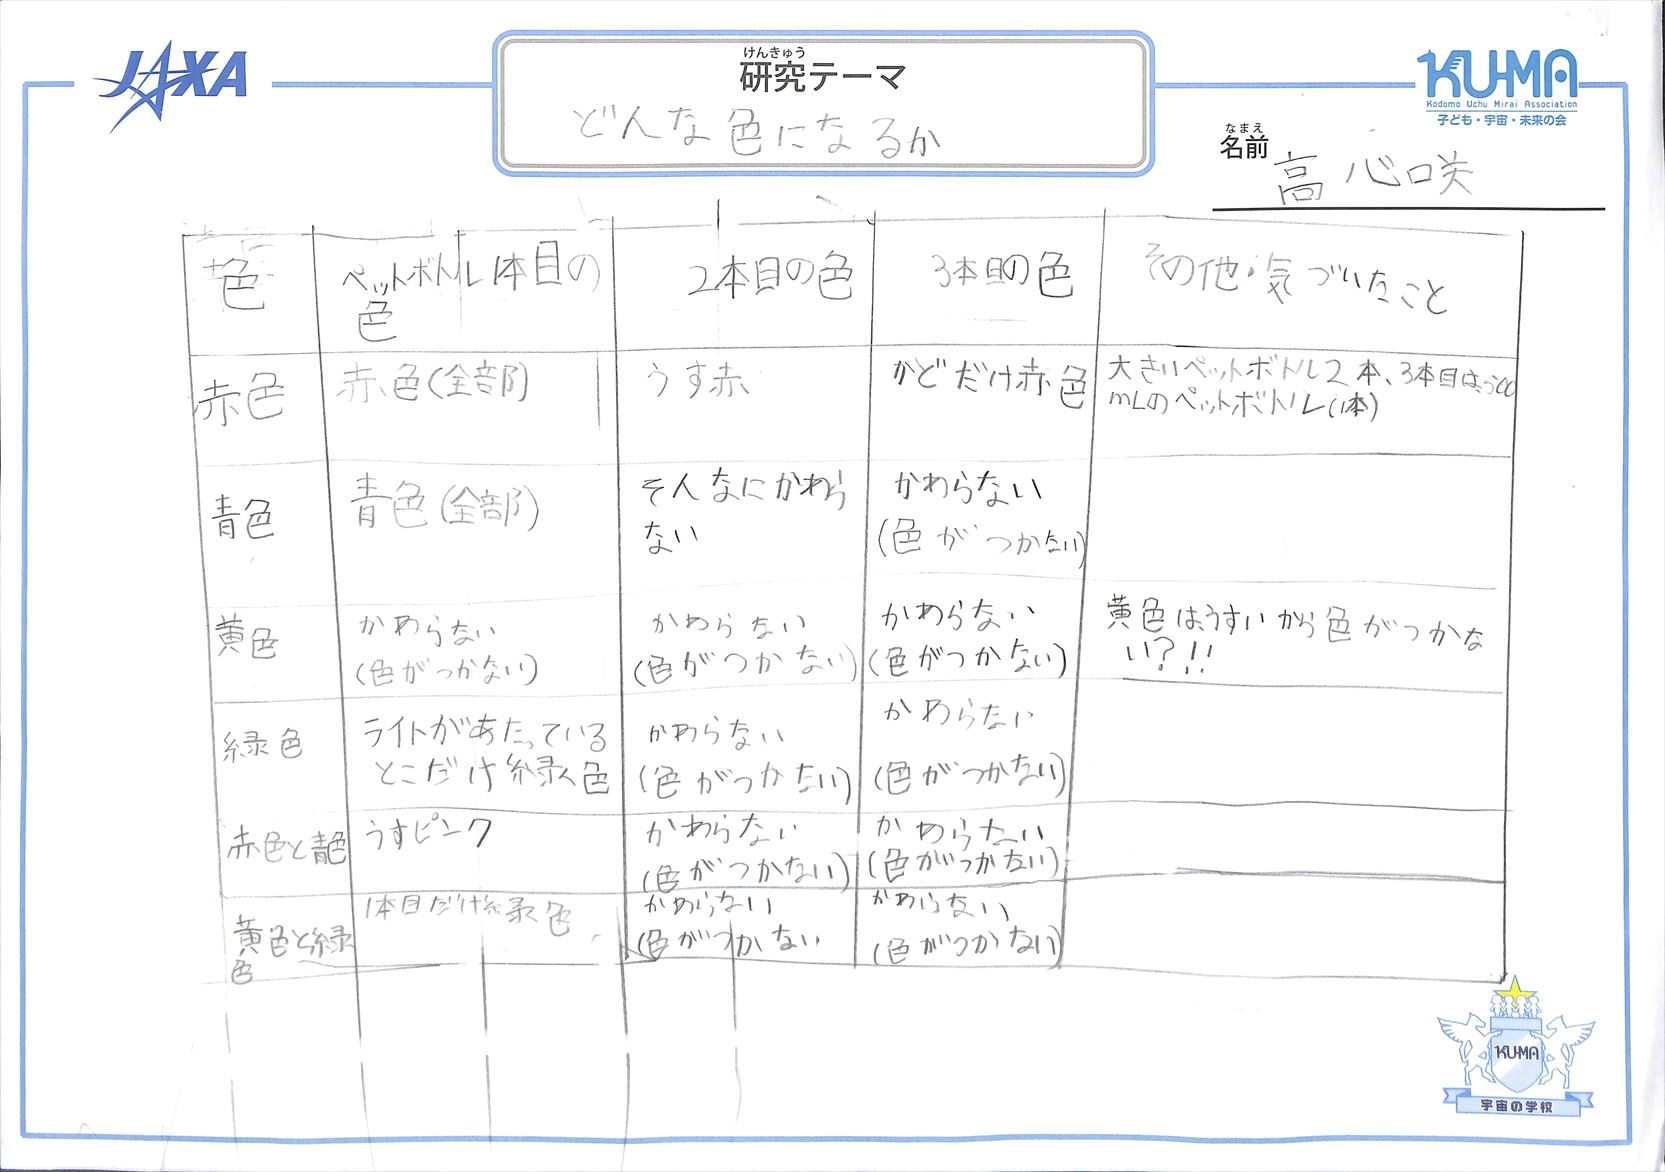 JAXA
けんきゅう
研究テーマ
どんな色になるか
KU-MA
Kodomo Uchu Mirai Association
子ども・宇宙・未来の会
なまえ
名前
高 心咲
色
ペットボトル1本目の
色
2本目の色
3本目の色
その他・気づいたこと
赤色
赤色(全部)
うす赤
かどだけ赤色
大きいペットボトル2本、3本目は500
mLのペットボトル(1本)
青色
青色(全部)
そんなにかわら
ない
かわらない
(色がつかない)
黄色
かわらない
(色がつかない)
かわらない
(色がつかない)
かわらない
(色がつかない)
黄色はうすいから色がつかな
い?!!
緑色
ライトがあたっている
とこだけ緑色
かわらない
(色がつかない)
かわらない
(色がつかない)
赤色と青色
うすピンク
かわらない
(色がつかない)
かわらない
(色がつかない)
黄色と緑
色
1本目だけ緑色
かわらない
(色がつかない
かわらない
(色がつかない)
KU-MA
宇宙の学校